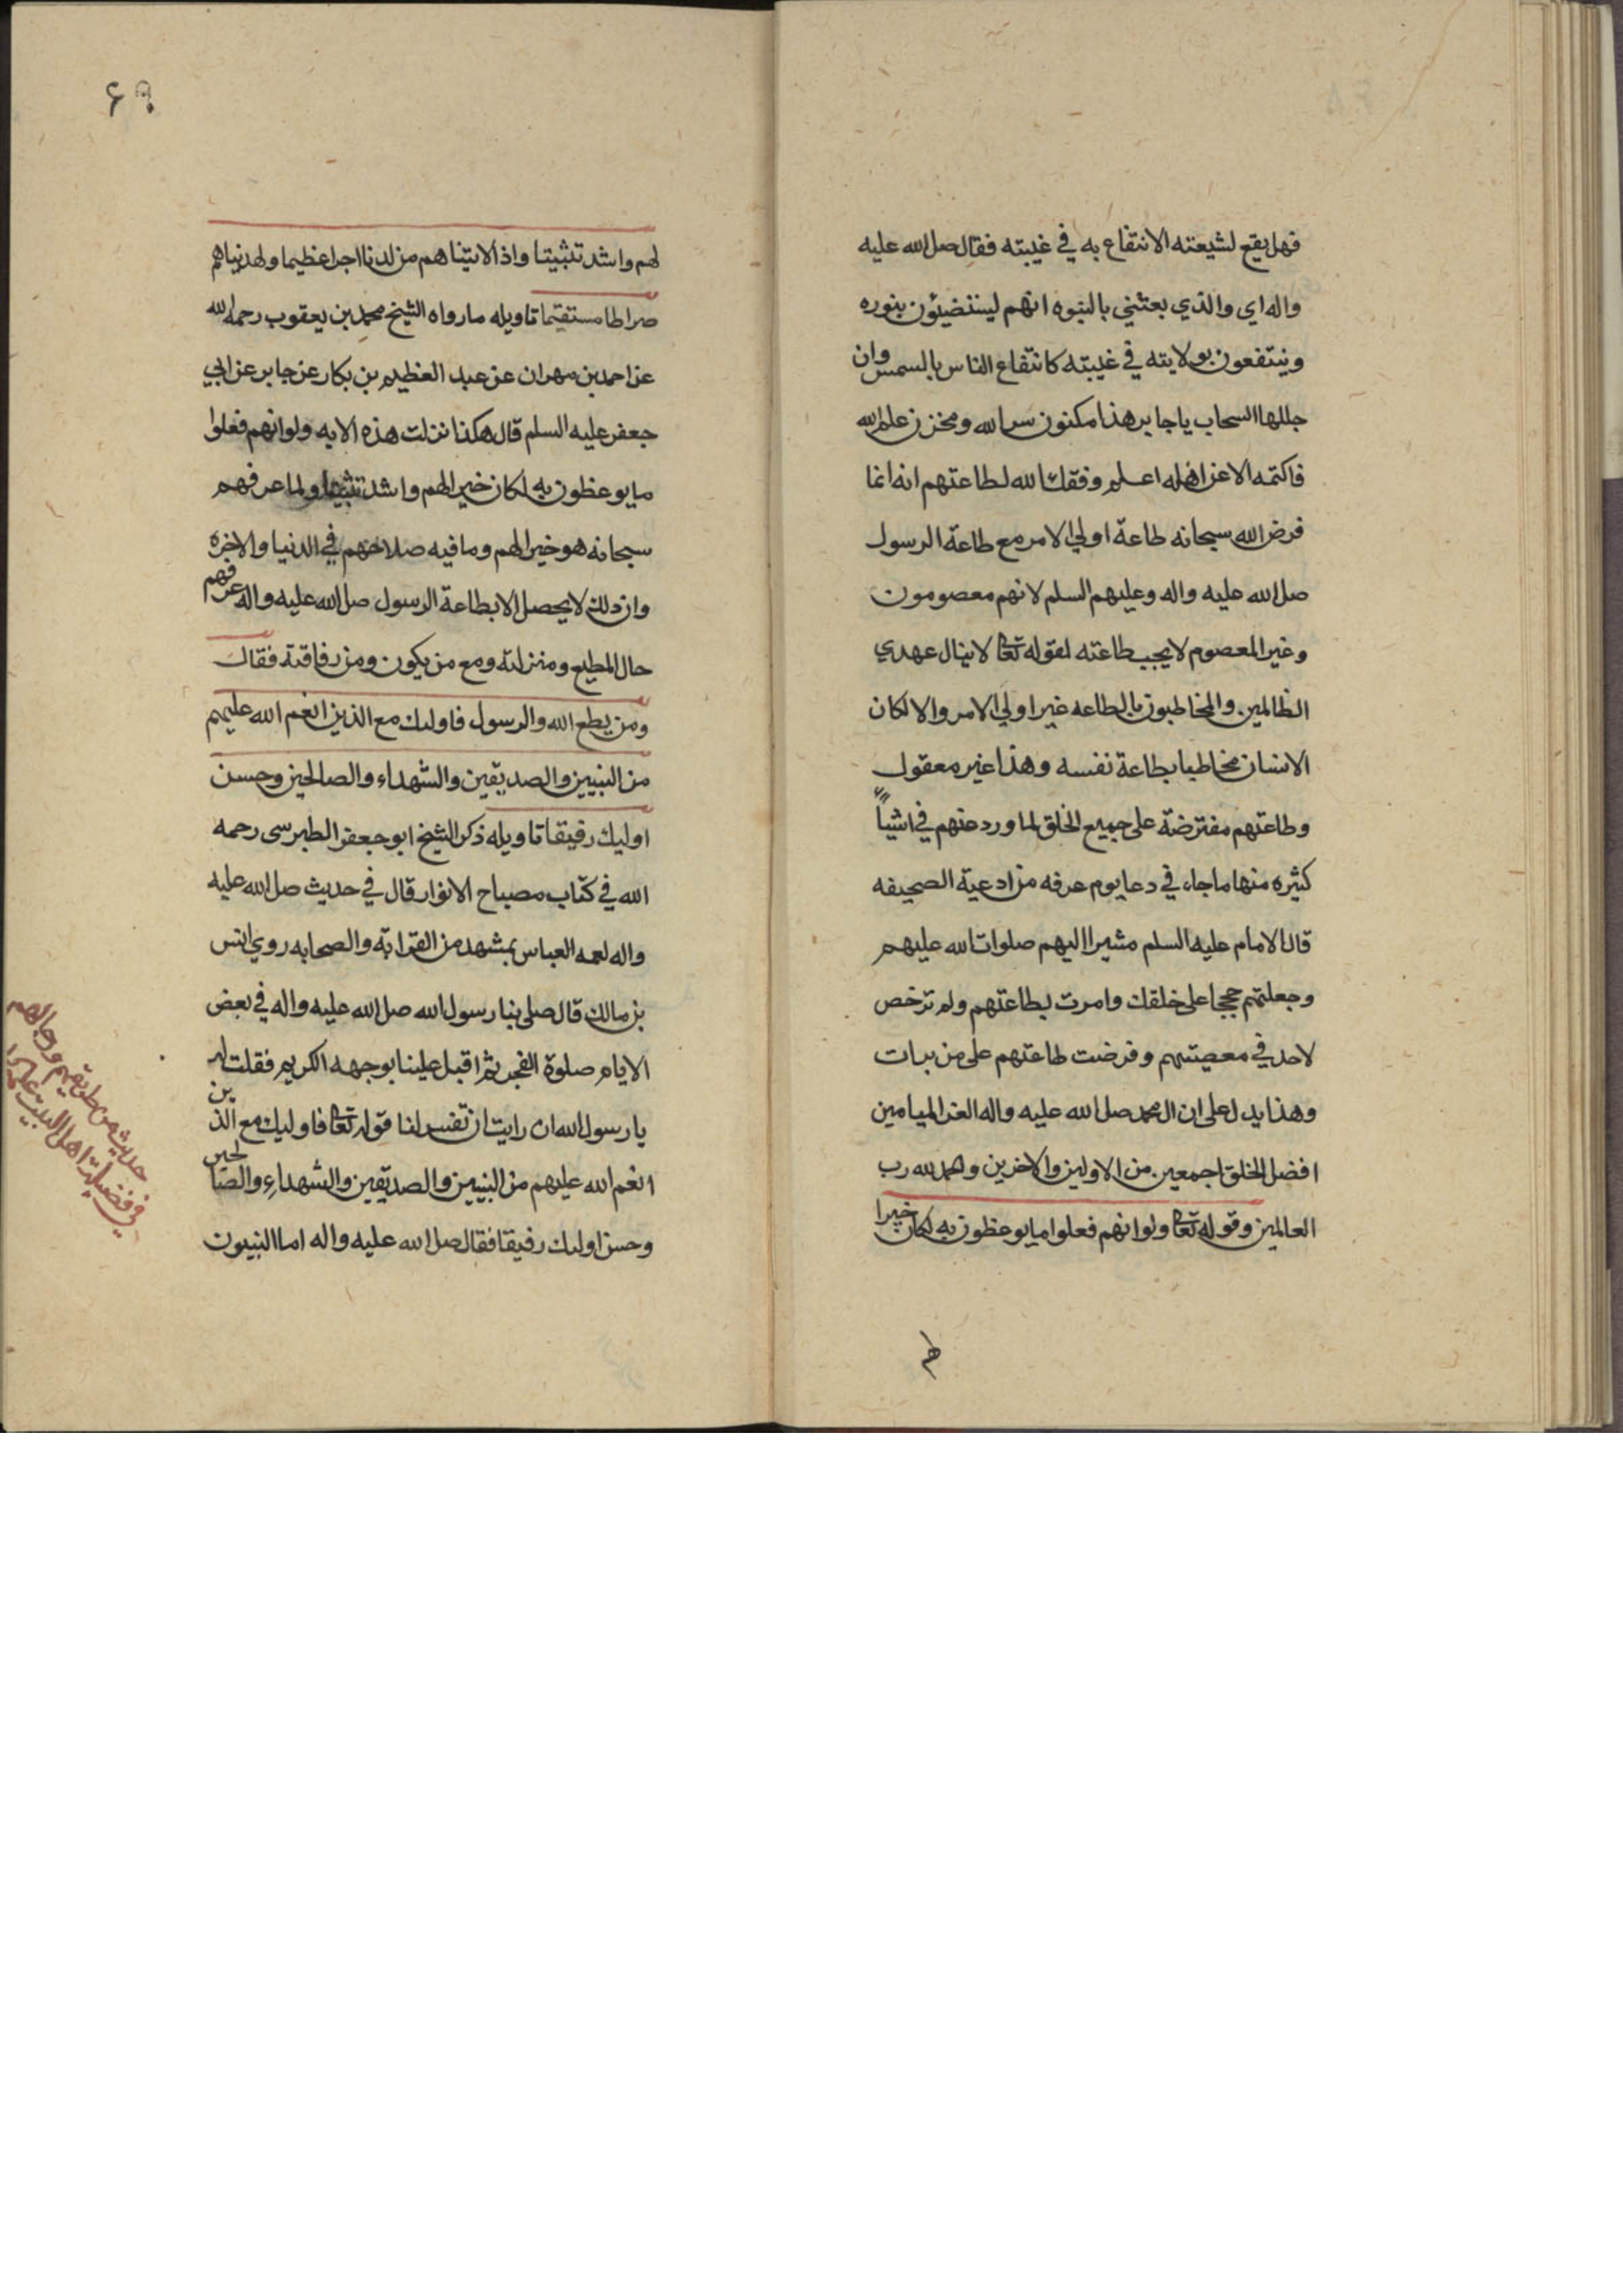 فهل يقع لشيعته الانتفاع به في غيبته فقال صل الله عليه
واله اي والذي بعثني بالنبوه انهم ليستضيئون بنوره
وينتفعون بولايته في غيبته كانتفاع الناس بالسمس وان
جللها السحاب ياجابر هذا مكنون سر الله ومخزن علم الله
فاكتمه الا عن اهله اعلم وفقك الله لطاعتهم انه انما
فرض الله سبحانه طاعة اولي الامر مع طاعة الرسول
صل الله عليه واله وعليهم السلم لانهم معصومون
وغير المعصوم لا يجب طاعته لقوله تعا لا ينال عهدي
الظالمين والمخاطبون بالطاعه غير اولي الامر والا لكان
الانسان مخاطبا بطاعة نفسه وهذا غير معقول
وطاعتهم مفترضة على جميع الخلق لما ورد عنهم في اشيآ
كثيره منها ما جاء في دعا يوم عرفه من ادعية الصحيفه
قال الامام عليه السلم مشيرا اليهم صلوات الله عليهم
وجعلتهم حججا على خلقك وامرت بطاعتهم ولم ترخص
لاحد في معصيتهم وفرضت طاعتهم على من برات
وهذا يدل على ان ال محمد صل الله عليه واله الغر الميامين
افضل الخلق اجمعين من الاولين والاخرين والحمد لله رب
العالمين وقوله تعا ولو انهم فعلوا ما يوعظون به لكان خيرا
لهم
لهم واشد تثبيتا واذا لاتيناهم من لدنا اجرا عظيما ولهديناهم
صراطا مستقيما تاويله ما رواه الشيخ محمد بن يعقوب رحمه الله
عن احمد بن مهران عن عبد العظيم بن بكار عن جابر عن ابي
جعفر عليه السلم قال هكذا نزلت هذه الايه ولو انهم فعلوا
ما يوعظون به لكان خيرا لهم واشد تثبيتا ولما عرفهم
سبحانه هو خيرا لهم وما فيه صلاحهم في الدنيا والاخره
وان ذلك لا يحصل الا بطاعة الرسول صل الله عليه واله عرفهم
حال المطيع ومنزلته ومع من يكون ومن رفاقته فقال
ومن يطع الله والرسول فاوليك مع الذين انعم الله عليهم
من النبيين والصديقين والشهداء والصالحين وحسن
اوليك رفيقا تاويله ذكر الشيخ ابو جعفر الطبرسى رحمه
الله في كتاب مصباح الانوار قال في حديث صل الله عليه
واله لعمه العباس بمشهد من القرابة والصحابه روي انس
بن مالك قال صلى بنا رسول الله صل الله عليه واله في بعض
الايام صلوة الفجر ثم اقبل علينا بوجهه الكريم فقلت له
يا رسول الله ان رايت ان تفسر لنا قوله تعا فاوليك مع الذين
انعم الله عليهم من النبيين والصديقين والشهداءِ والصالحين
وحسن اوليك رفيقا فقال صل الله عليه واله اما النبيون
حديث من طريقهم ورجالهم
في فضيلة اهل البيت